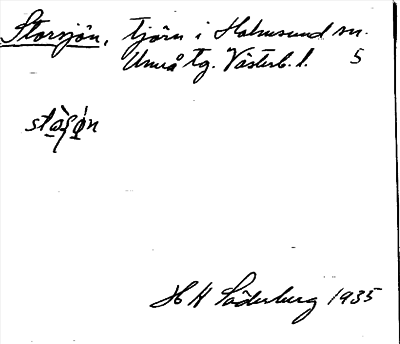 Storsjön, tjärn i Holmsund sn.
Umeå tg. Västerb. l. 5
H H Söderberg 1935